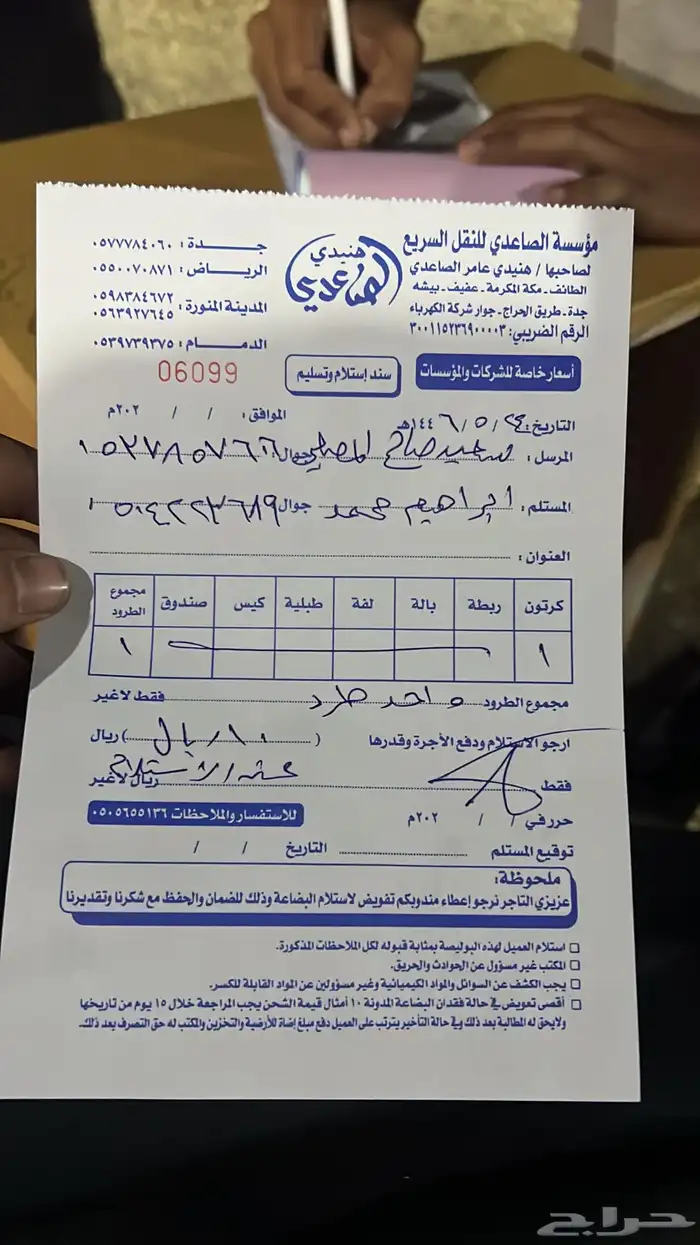 مؤسسة الصاعدي للنقل السريع
لصاحبها / هنيدي عامر الصاعدي
الطائف - مكة المكرمة - عفيف - بيشه
جدة - طريق الحراج - جوار شركة الكهرباء
الرقم الضريبي: ٣٠٠١١٥٢٣٦٩٠٠٠٠٣
هنيدي
الصاعدي
جـــدة : ٠٥٧٧٧٨٤٠٦٠
الرياض : ٠٥٥٠٠٧٠٨٧١
المدينة المنورة : ٠٥٩٨٣٨٤٦٧٢
٠٥٦٣٩٢٧٦٤٥
الدمـــام : ٠٥٣٩٧٣٩٣٧٥
06099
أسعار خاصة للشركات والمؤسسات
سند إستلام وتسليم
التاريخ : ٢٤ / ٥ / ١٤٤٦هـ الموافق : / / ٢٠٢م
المرسل : سعيد صالح جوال ٠٥٣٧٨٥٧٦٦
المستلم : ابراهيم محمد جوال ٠٥٠٤٢٢٣٦٨٩
العنوان :
كرتون ربطة بالة لفة طبلية كيس صندوق مجموع الطرود
١ ١
مجموع الطرود واحد طرد فقط لاغير
ارجو الاستلام ودفع الأجرة وقدرها ( ١٠ ريال ) ريال
فقط عند الاستلام ريال لاغير
حرر في / / ٢٠٢م
للاستفسار والملاحظات ٠٥٠٥٦٥٥١٣٦
توقيع المستلم التاريخ / /
ملحوظة:
عزيزي التاجر نرجو إعطاء مندوبكم تفويض لاستلام البضاعة وذلك للضمان والحفظ مع شكرنا وتقديرنا
استلام العميل لهذه البوليصة بمثابة قبوله لكل الملاحظات المذكورة.
المكتب غير مسؤول عن الحوادث والحريق.
يجب الكشف عن السوائل والمواد الكيميائية وغير مسؤولين عن المواد القابلة للكسر.
أقصى تعويض في حالة فقدان البضاعة المدونة ١٠ أمثال قيمة الشحن يجب المراجعة خلال ١٥ يوم من تاريخها
ولايحق له المطالبة بعد ذلك وفي حالة التأخير يترتب على العميل دفع مبلغ إضافة للأرضية والتخزين والمكتب له حق التصرف بعد ذلك.
حراج